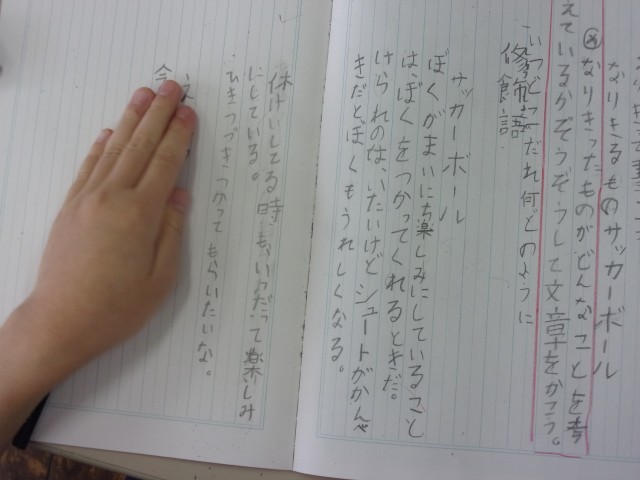 なりきるものサッカーボール
めなりきったものがどんなことを考
えているかぞうぞうして文章をかこう。
いつどこだれ何どのように
修飾語
サッカーボール
ぼくがまいにち楽しみにしていること
は、ぼくをつかってくれるときだ。
けられのは、いたいけどシュートがかんぺ
きだとぼくもうれしくなる。
休けいしてる時、もいつだって楽しみ
にしている。
ひきつづきつかってもらいたいな。
今